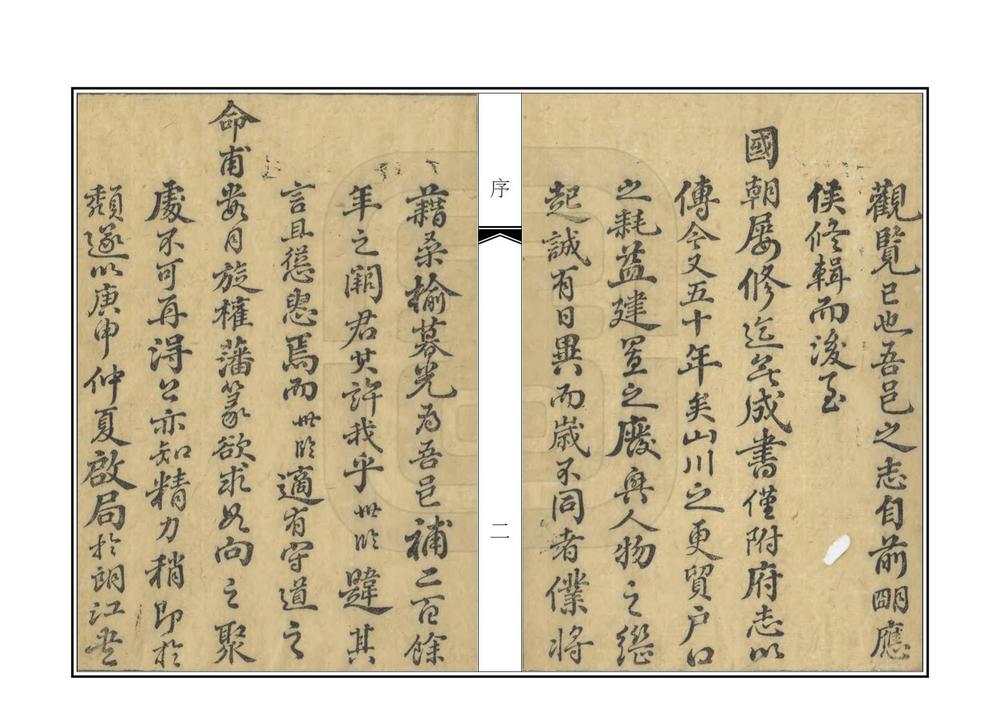 觀覽已也吾邑之志自前明應
侯修輯而後至
國朝屢修迄無成書僅附府志以
傳今又五十年矣山川之更貿戶口
之耗益建置之廢興人物之繼
起誠有日異而歲不同者僕將
序
二
藉桑榆暮光為吾邑補二百餘
年之闕君其許我乎世昕韙其
言且慫恿焉而世昕適有守道之
命甫數月旋權藩篆欲求如向之聚
處不可再得公亦知精力稍即於
頹遂以庚申仲夏啟局於朗江書